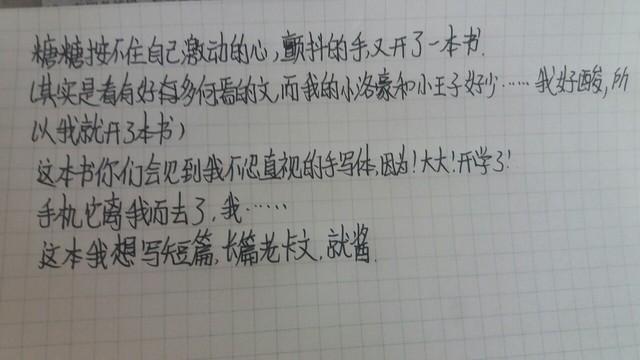 糖糖按不住自己激动的心,颤抖的手,又开了一本书.
(其实是看有好多何焉的文,而我的小洛豪和小王子好少……我好酸,所
以我就开了本书)
这本书你们会见到我不忍直视的手写体,因为!大大!开学了!
手机它离我而去了,我……
这本我想写短篇,长篇老卡文,就酱.